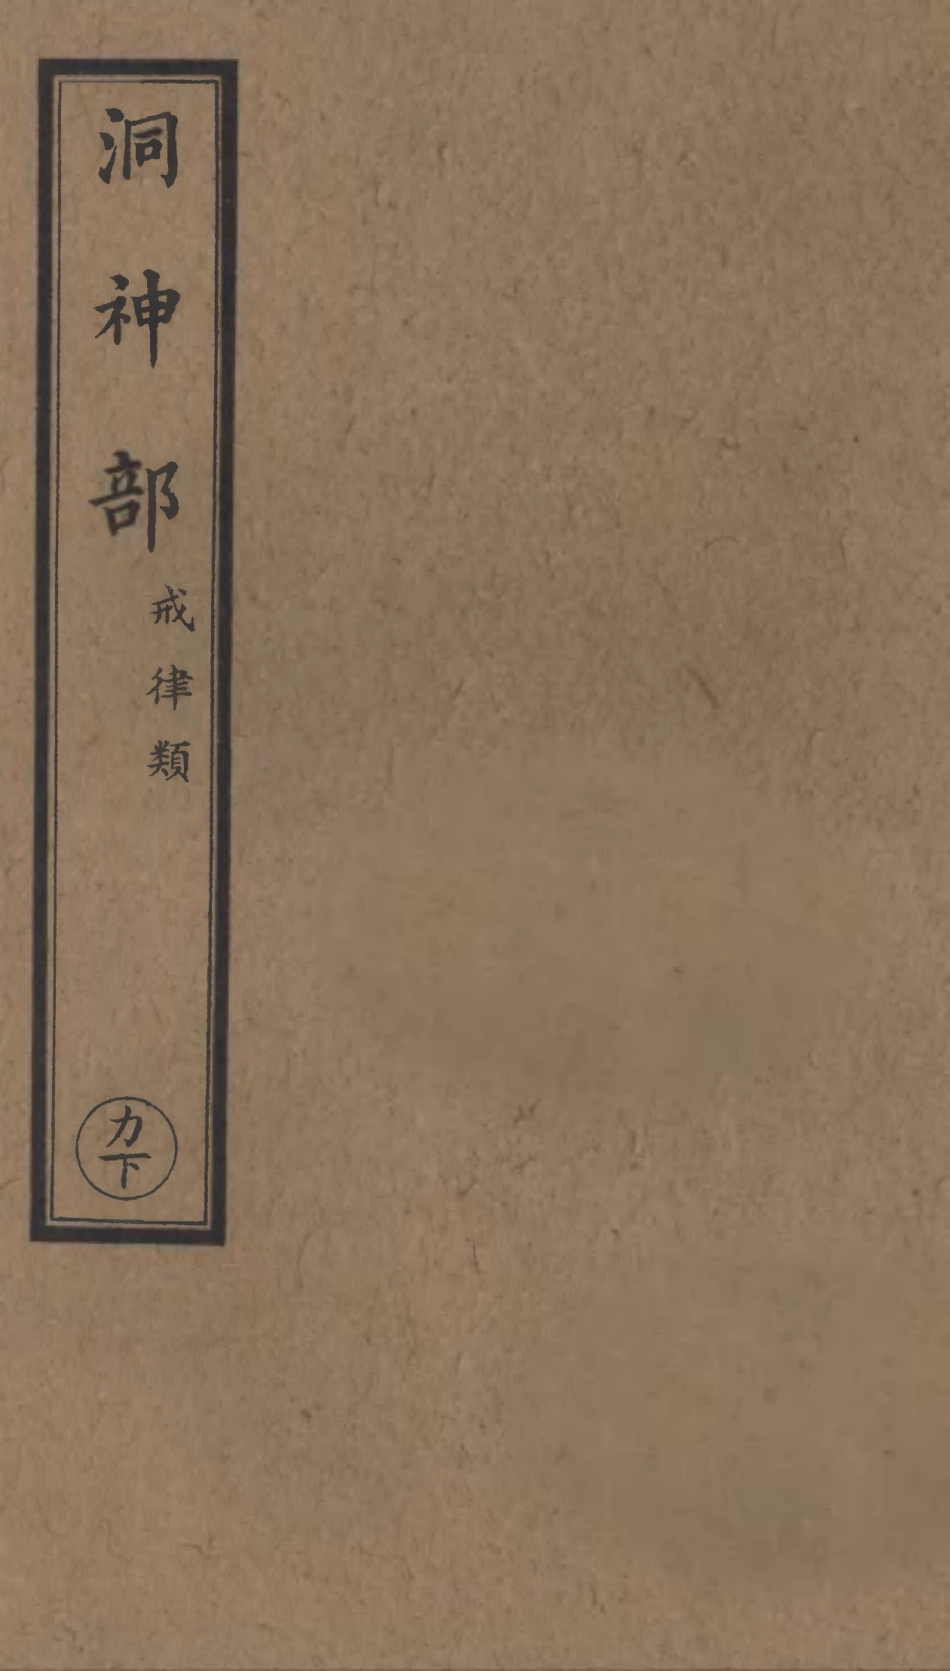 洞神部
戒律類
力下